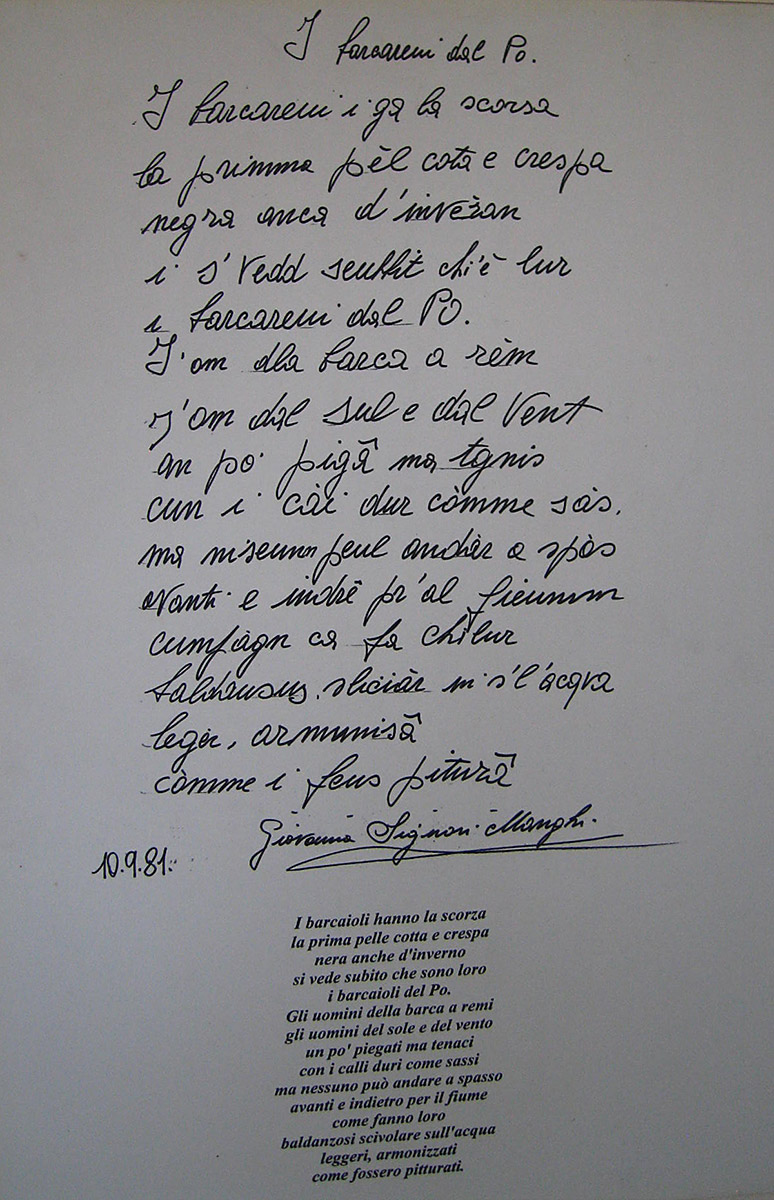 I barcareui dal Po.
I barcareui i ga la scorsa
la primma pèl cota e crespa
negra anca d'inveran
i s'vedd seubbit chi'è lur
i barcareui dal PO.
I'om dla barca a rèm
I'om dal sul e dal vent
an po' pigâ ma tgnis
cun i cài dur còmme sàs.
ma niseunn peul andàr a spàs
avanti e indrê pr'al fieumm
cumpàgn ca fa chi lur
baldansus sliciàr in s'l'àcqua
leger, armunisâ
còmme i feus piturâ
Giovanna Signori Manghi.
10.9.81.
I barcaioli hanno la scorza
la prima pelle cotta e crespa
nera anche d'inverno
si vede subito che sono loro
i barcaioli del Po.
Gli uomini della barca a remi
gli uomini del sole e del vento
un po' piegati ma tenaci
con i calli duri come sassi
ma nessuno può andare a spasso
avanti e indietro per il fiume
come fanno loro
baldanzosi scivolare sull'acqua
leggeri, armonizzati
come fossero pitturati.